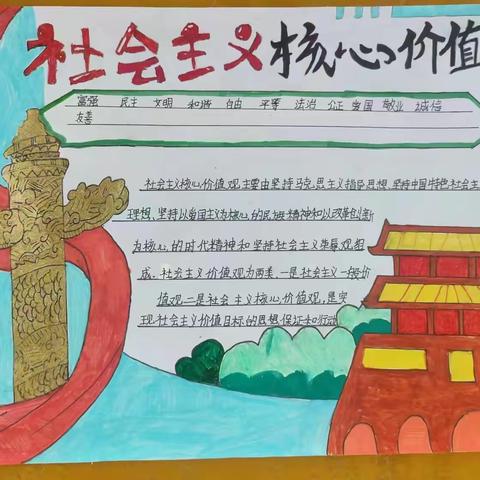 社会主义核心价值
富强 民主 文明 和谐 自由 平等 法治 公正 爱国 敬业 诚信
友善
社会主义核心价值观主要由坚持马克思主义指导思想、坚持中国特色社会主
理想、坚持以爱国主义为核心的民族精神和以改革创新
为核心的时代精神和坚持社会主义荣辱观构
成、社会主义价值观为两类、一是社会主义一般价
值观、二是社会主义核心价值观、是实
现社会主义价值目标的思想保证和行动